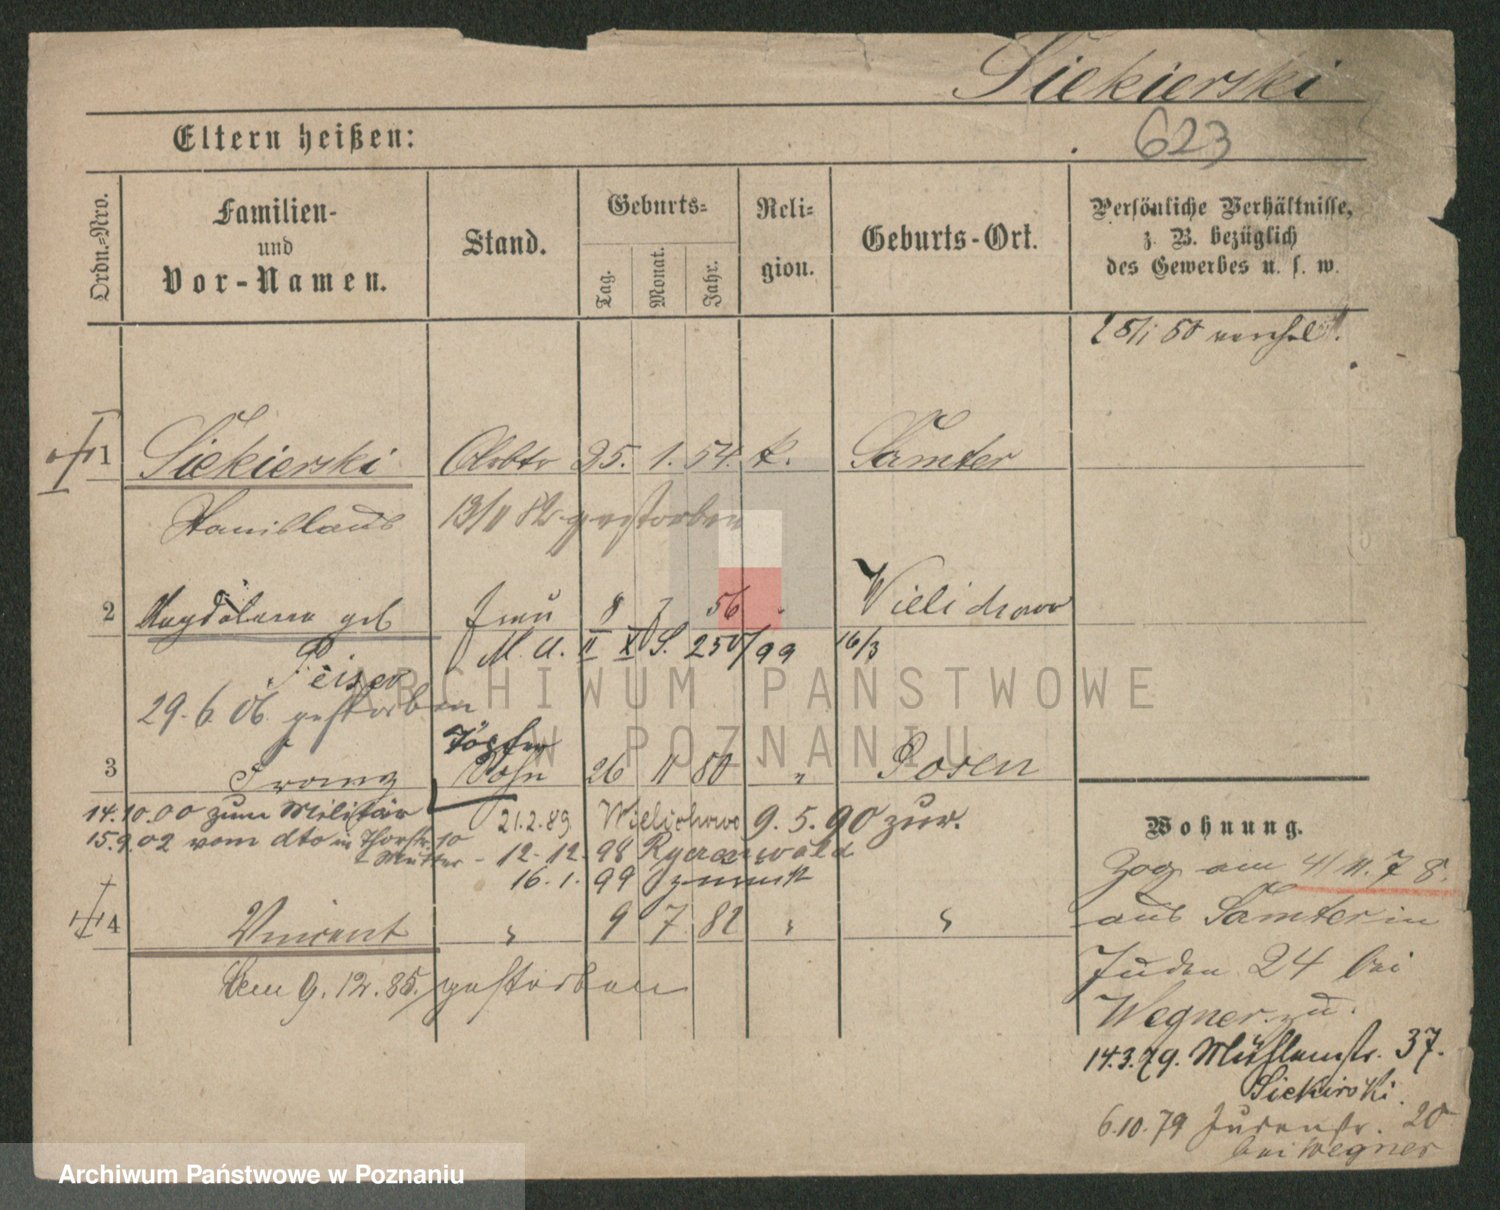 Siekierski
623
Eltern heißen:
Ordn.=Nro.
Familien-
und
Vor-Namen.
Stand.
Geburts=
Tag.
Monat.
Jahr.
Reli=
gion.
Geburts-Ort.
Persönliche Verhältnisse,
z. B. bezüglich
des Gewerbes u. s. w.
1 Siekierski Arbtr 25. 1. 54. k. Samter
Stanislaus 13/11 82 gestorben
2 Magdalena geb Frau 8 7 56 Wielichowo
M. A. II X S. 250/99 16/3
29.6.06. gestorben
Töpfer
3 Franz Sohn 26 11 80 " Posen
14.10.00 zum Militär 21.2.89 Wielichowo 9.5.90 zur.
15.9.02 vom dto in Thorstr. 10
Mutter - 12.12.98
16.1.99
4 Vincent " 9 7 82 " "
Den 9.12.85. gestorben
Wohnung.
Zog am 4/11.78.
aus Samter in
Juden 24 bei
Wegner zu.
14.3.79. Mühlenstr. 37.
Siekirski.
6.10.79 Judenstr. 20
bei Wegner
ARCHIWUM PAŃSTWOWE
W POZNANIU
Archiwum Państwowe w Poznaniu